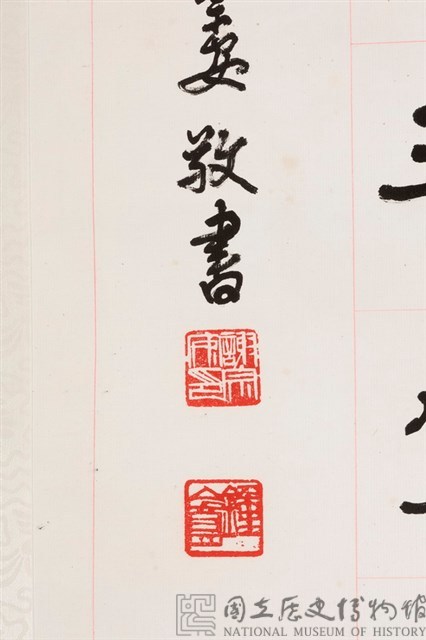 宗安敬書
謝宗安印
國立歷史博物館
NATIONAL MUSEUM OF HISTORY